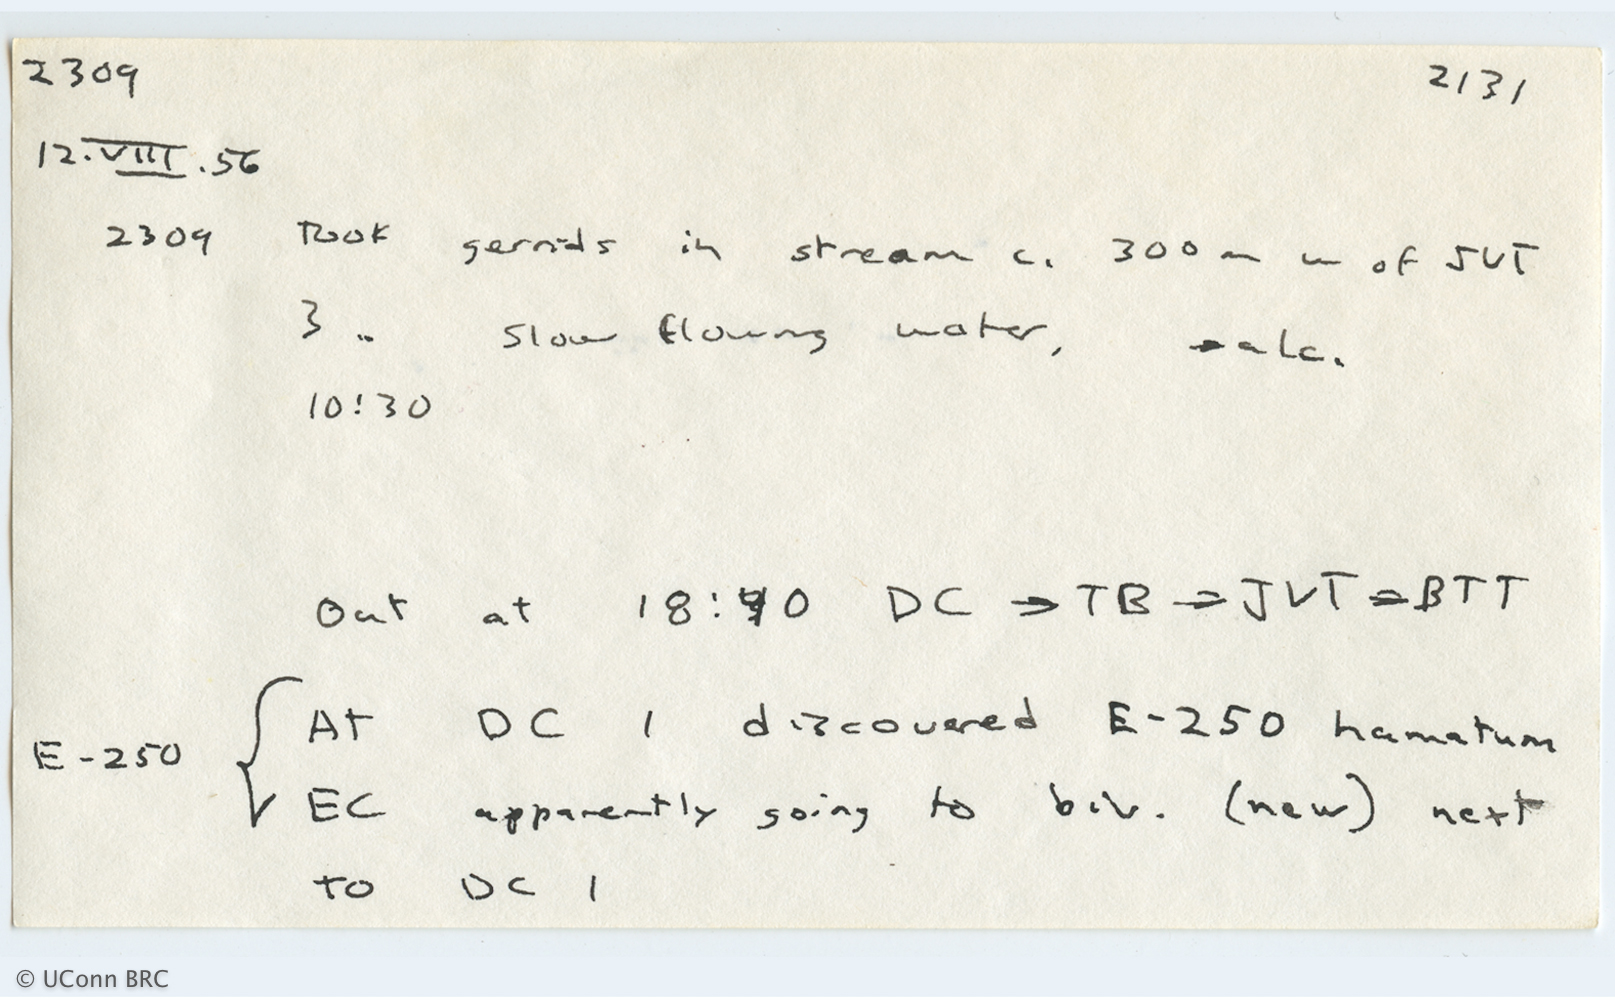 2309 2131
12.VIII.56
2309 Took gerrids in stream c. 300 m w of JVT
3.. slow flowing water, → alc.
10:30
Out at 18:40 DC → TB → JVT → BTT
At DC 1 discovered E-250 hamatum
E-250 EC apparently going to biv. (new) next
to DC 1
© UConn BRC